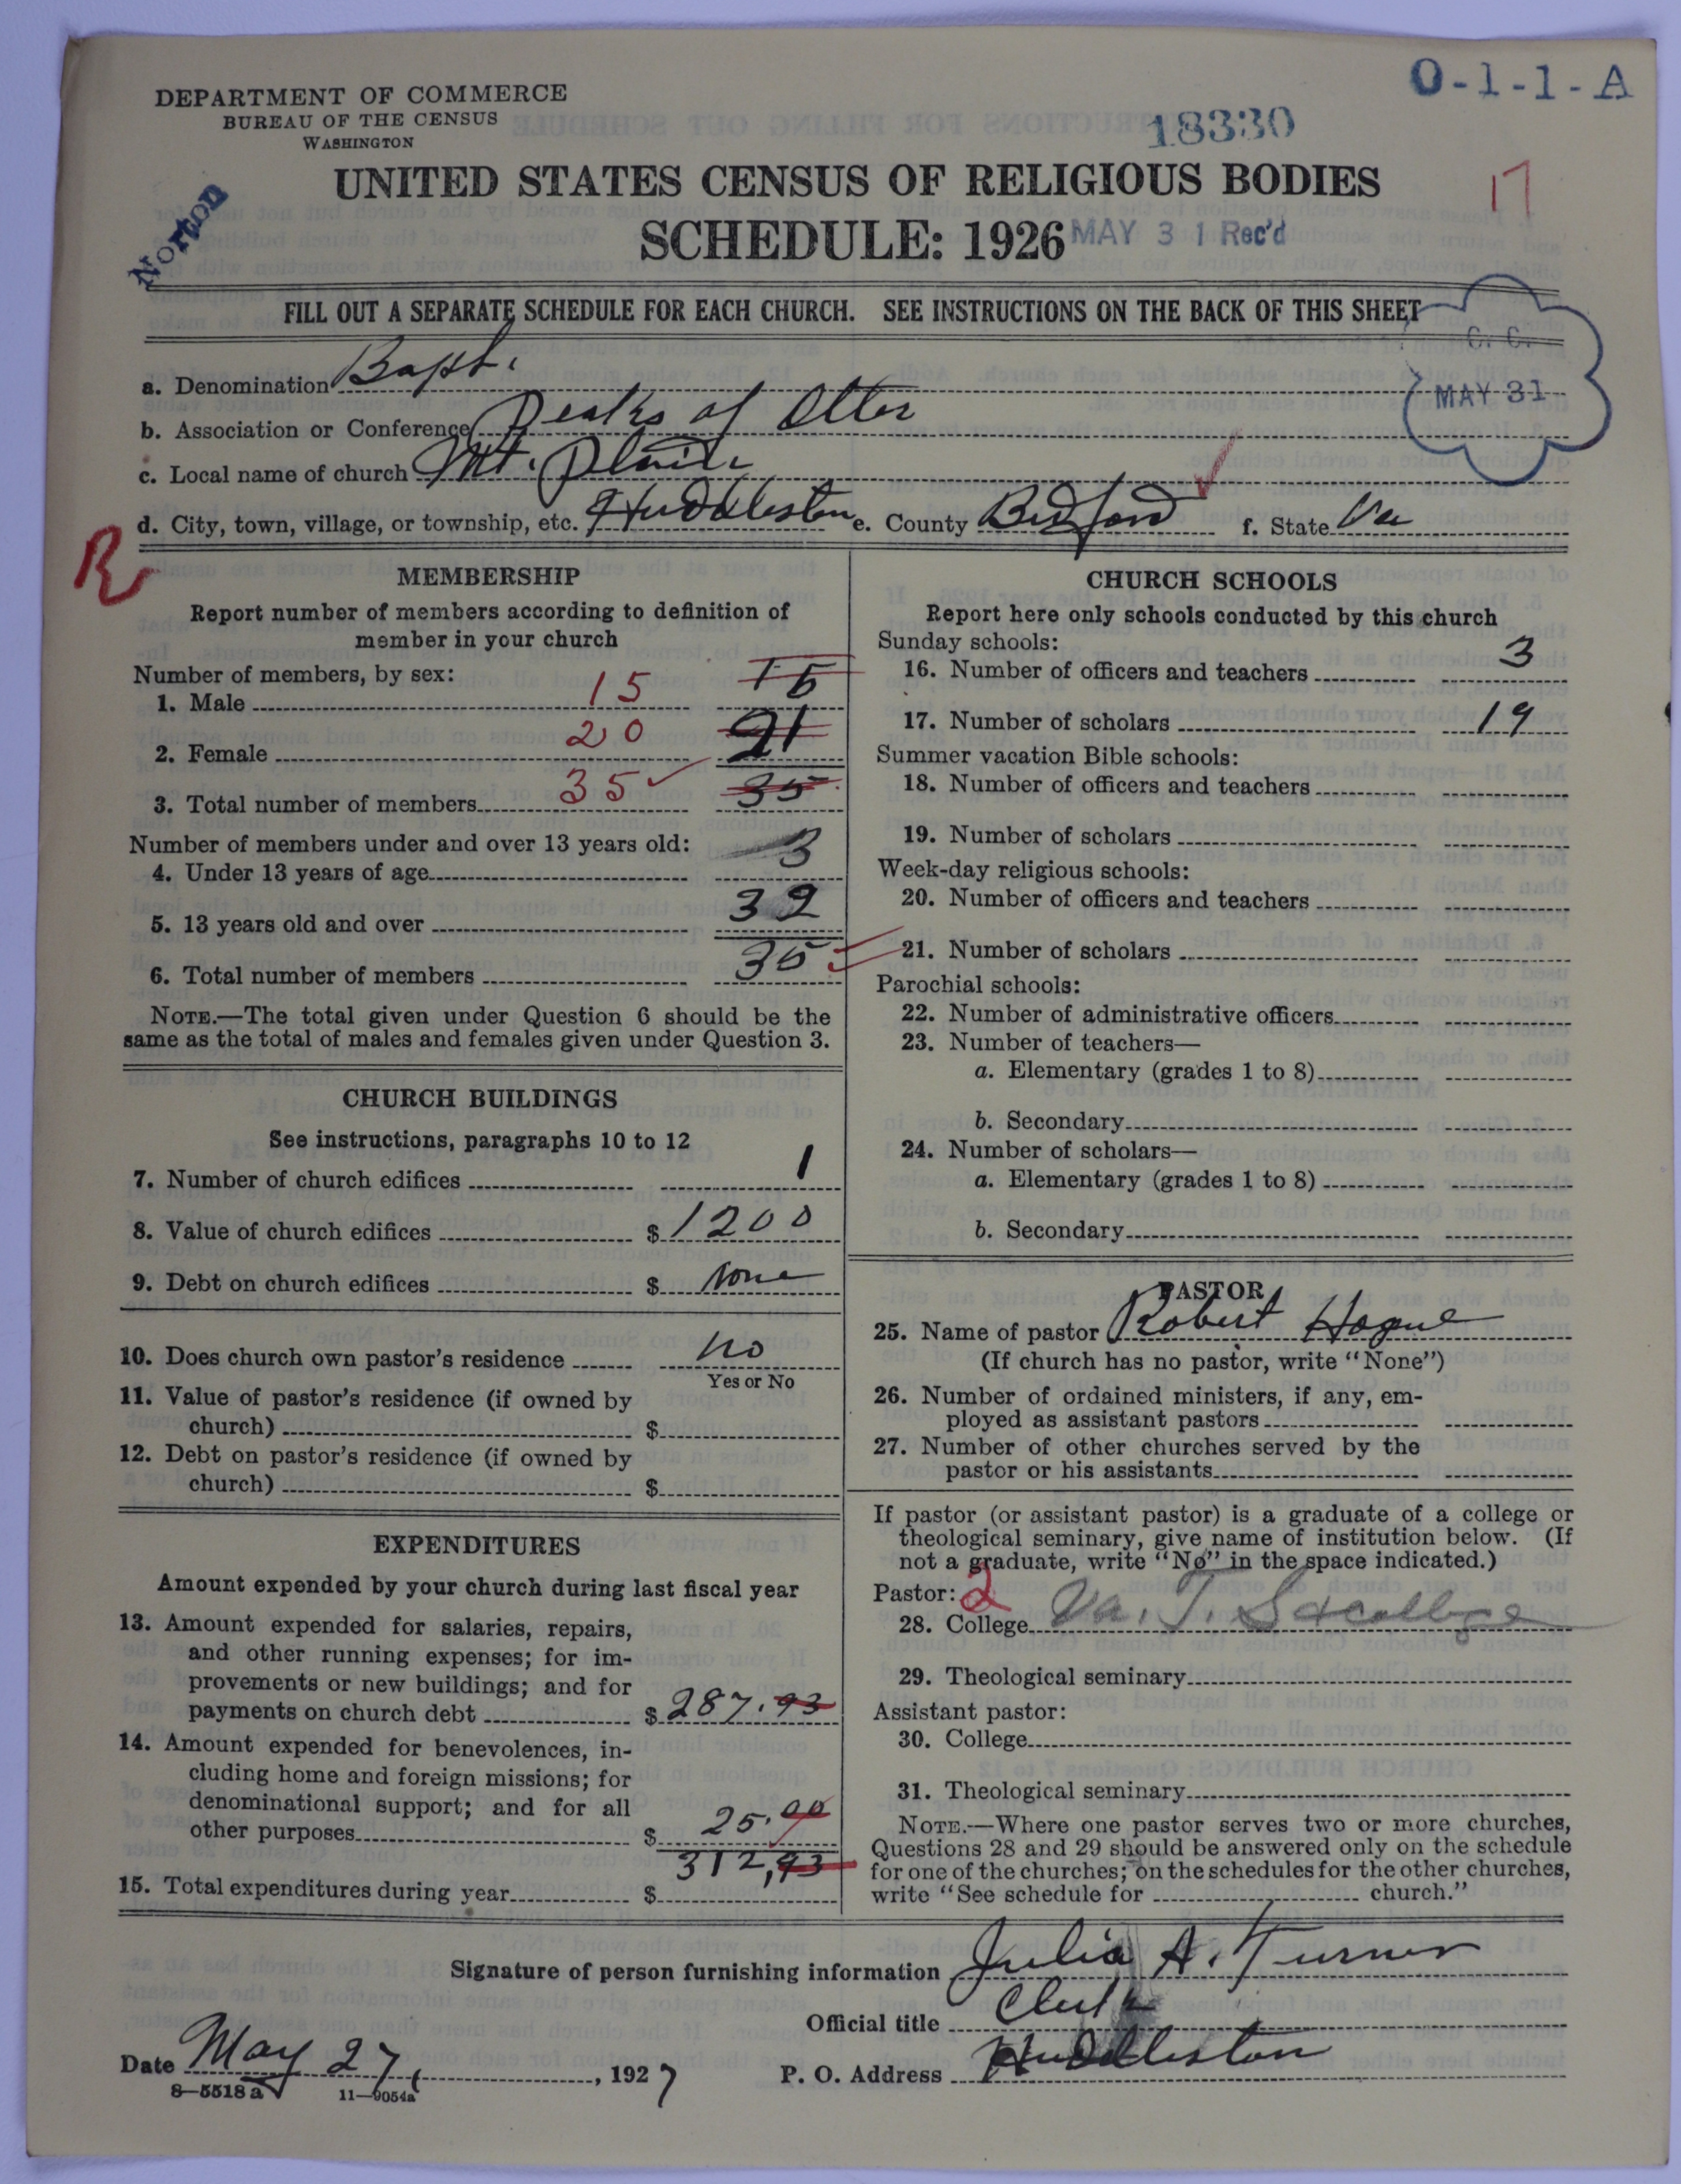 DEPARTMENT OF COMMERCE
BUREAU OF THE CENSUS
WASHINGTON
O-1-1-A
18330
17
Norton
UNITED STATES CENSUS OF RELIGIOUS BODIES
SCHEDULE: 1926
MAY 31 Rec'd
FILL OUT A SEPARATE SCHEDULE FOR EACH CHURCH. SEE INSTRUCTIONS ON THE BACK OF THIS SHEET
C. C.
MAY 31
a. Denomination Bapt.
b. Association or Conference Peaks of Otter
c. Local name of church Mt.
d. City, town, village, or township, etc. Huddleston e. County Bedford f. State Va
R
MEMBERSHIP
Report number of members according to definition of
member in your church
Number of members, by sex:
1. Male 15 15
2. Female 20 21
3. Total number of members 35 35
Number of members under and over 13 years old:
4. Under 13 years of age 3
5. 13 years old and over 32
6. Total number of members 35
NOTE.—The total given under Question 6 should be the
same as the total of males and females given under Question 3.
CHURCH BUILDINGS
See instructions, paragraphs 10 to 12
7. Number of church edifices 1
8. Value of church edifices $ 1200
9. Debt on church edifices $ None
10. Does church own pastor's residence no
Yes or No
11. Value of pastor's residence (if owned by
church) $
12. Debt on pastor's residence (if owned by
church) $
EXPENDITURES
Amount expended by your church during last fiscal year
13. Amount expended for salaries, repairs,
and other running expenses; for im-
provements or new buildings; and for
payments on church debt $ 287.93
14. Amount expended for benevolences, in-
cluding home and foreign missions; for
denominational support; and for all
other purposes $ 25.00
15. Total expenditures during year $ 312,93
CHURCH SCHOOLS
Report here only schools conducted by this church
Sunday schools:
16. Number of officers and teachers 3
17. Number of scholars 19
Summer vacation Bible schools:
18. Number of officers and teachers
19. Number of scholars
Week-day religious schools:
20. Number of officers and teachers
21. Number of scholars
Parochial schools:
22. Number of administrative officers
23. Number of teachers—
a. Elementary (grades 1 to 8)
b. Secondary
24. Number of scholars—
a. Elementary (grades 1 to 8)
b. Secondary
PASTOR
25. Name of pastor Robert Hogue
(If church has no pastor, write "None")
26. Number of ordained ministers, if any, em-
ployed as assistant pastors
27. Number of other churches served by the
pastor or his assistants
If pastor (or assistant pastor) is a graduate of a college or
theological seminary, give name of institution below. (If
not a graduate, write "No" in the space indicated.)
Pastor: 2
28. College Va. T. S. college
29. Theological seminary
Assistant pastor:
30. College
31. Theological seminary
NOTE.—Where one pastor serves two or more churches,
Questions 28 and 29 should be answered only on the schedule
for one of the churches; on the schedules for the other churches,
write "See schedule for church."
Signature of person furnishing information Julia A. Turner
Official title Clerk
Date May 27, 1927 P. O. Address Huddleston
8—5518a 11—9054a